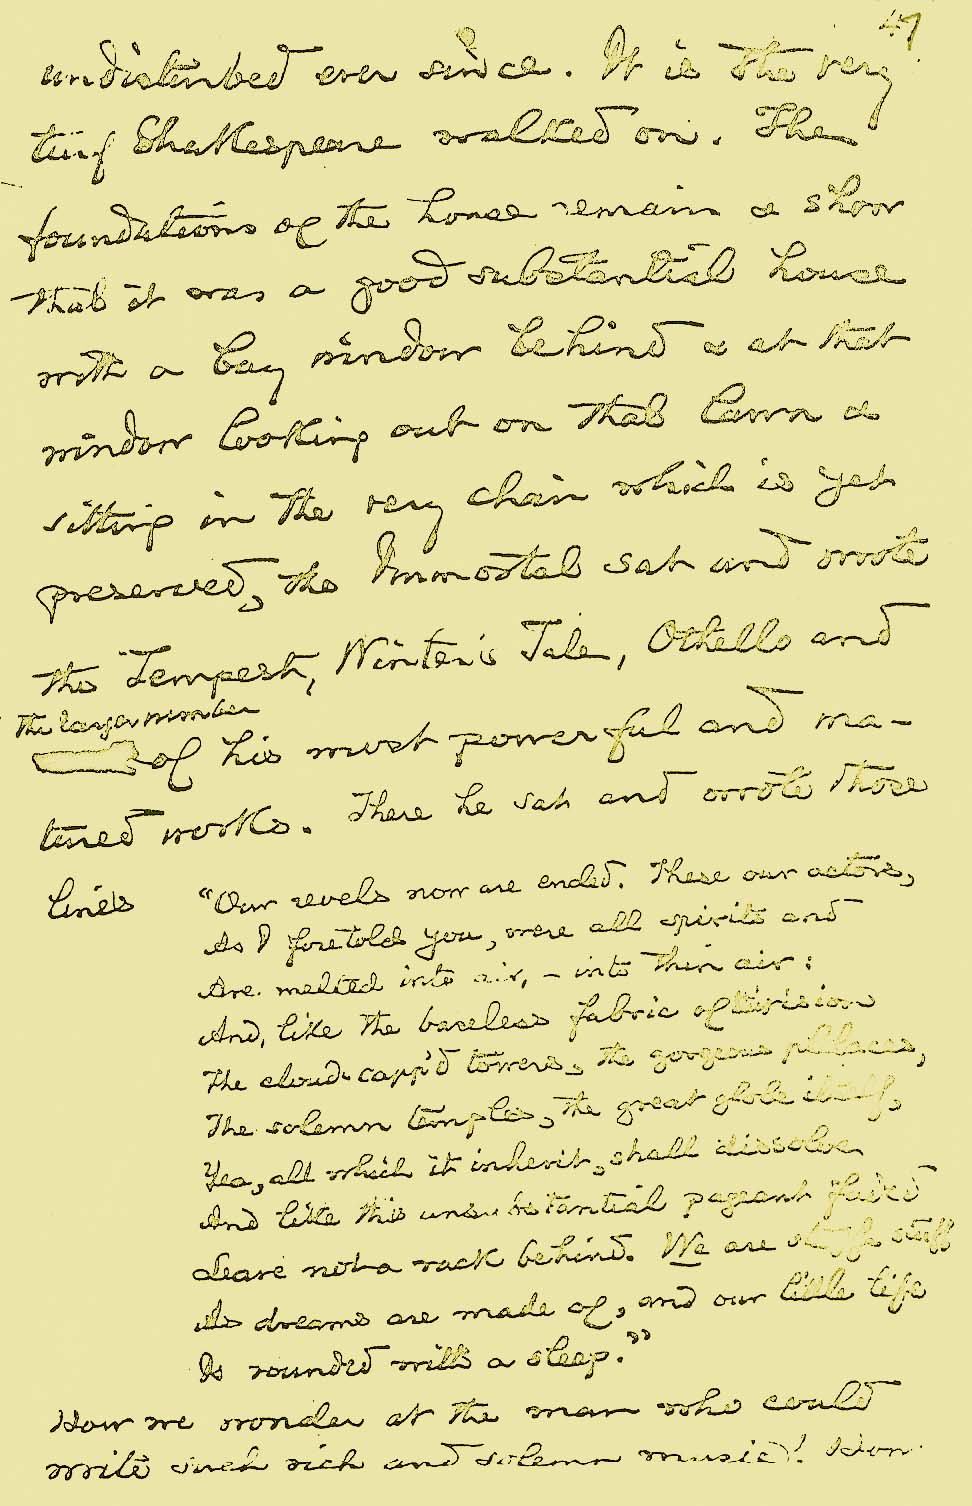 47
undisturbed ever since. It is the very
turf Shakespeare walked on. The
foundations of the house remain & show
that it was a good substantial house
with a bay window behind & at that
window looking out on that lawn &
sitting in the very chair which is yet
preserved, the Immortal sat and wrote
the Tempest, Winter's Tale, Othello and
the larger number
of his most powerful and ma-
tured works. There he sat and wrote those
lines "Our revels now are ended. These our actors,
As I foretold you, were all spirits and
Are melted into air, – into thin air:
And, like the baseless fabric of this vision
The cloud-capp'd towers, the gorgeous palaces,
The solemn temples, the great globe itself,
Yea, all which it inherit, shall dissolve
And like this unsubstantial pageant faded
Leave not a rack behind. We are such stuff
As dreams are made of, and our little life
Is rounded with a sleep."
How we wonder at the man who could
write such rich and solemn music! How